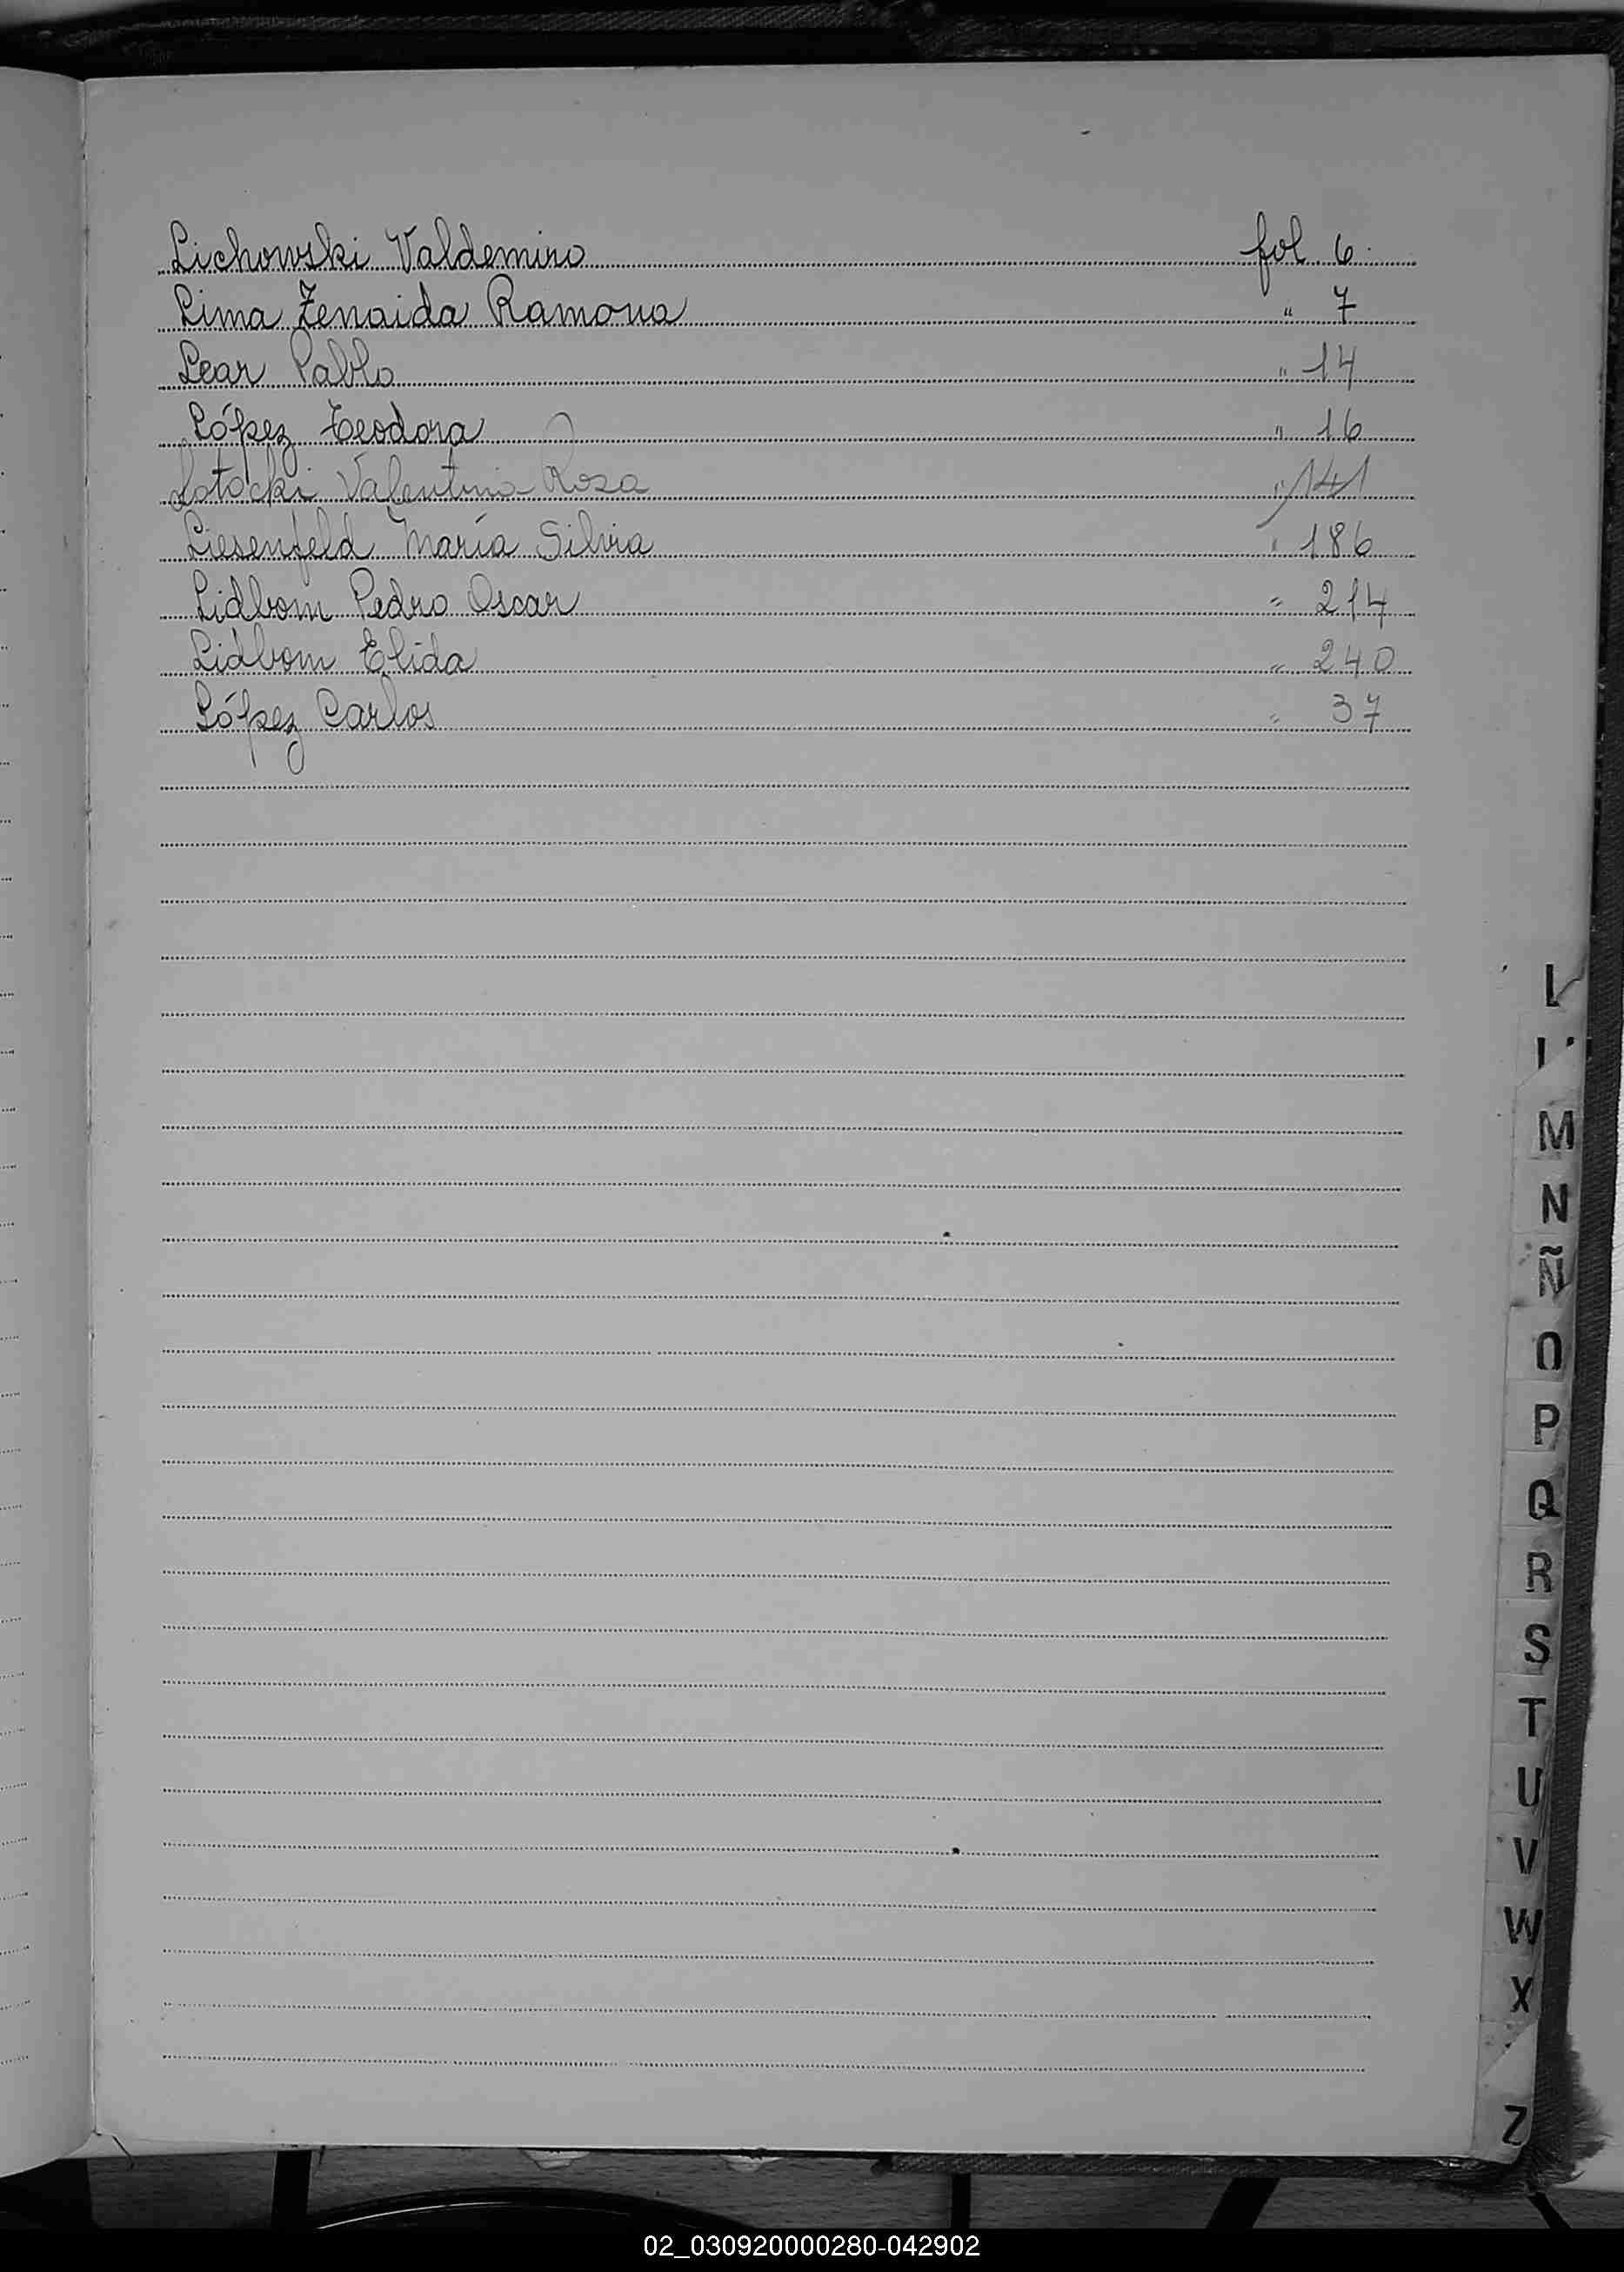 Lichowski Valdemiro fol. 6.
Lima Zenaida Ramona " 7
Lear Pablo " 14
López Teodora " 16
Latocki Valentina Rosa " 141
Liesenfeld María Silvia " 186
Lidbom Pedro Oscar " 214
Lidbom Elida " 240
López Carlos " 37
L
M
N
Ñ
O
P
Q
R
S
T
U
V
W
X
Z
02_030920000280-042902